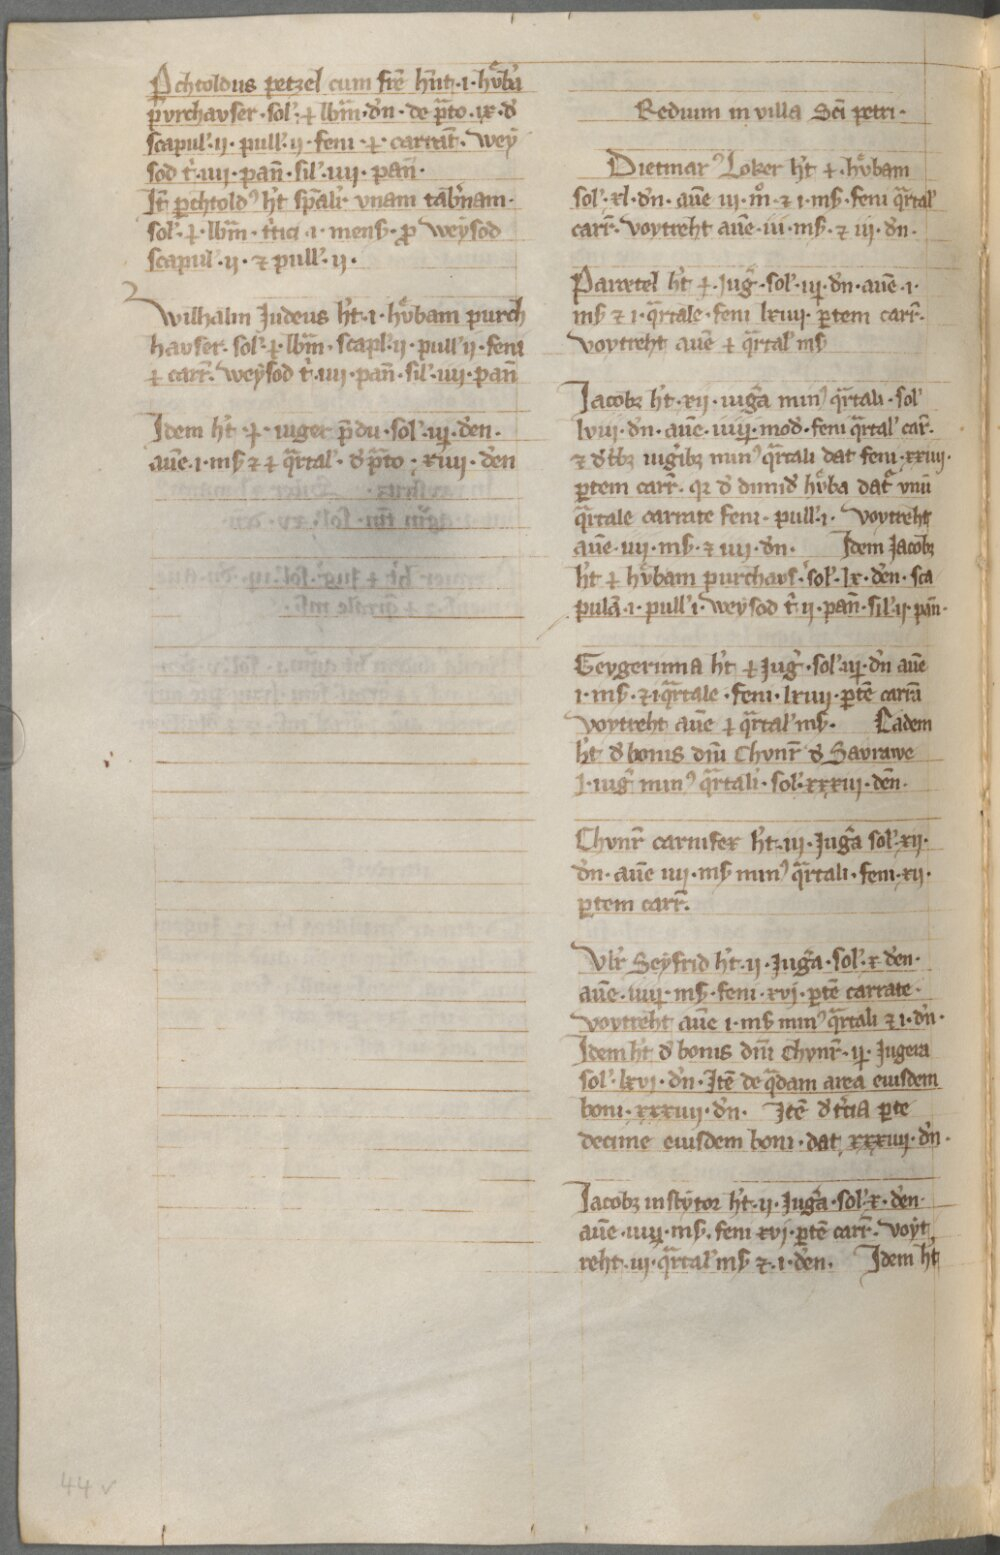 Pchtoldus petzel cum fr̄e hn̄t·i·hv̊bā
pvrchavser·sol'·⁊·lbm̄·dn̄·de p̄to·ix·d̄
scapul'·ii·pull'·ii·feni·⁊·carrat̄·wey
sod t'·iiii·pan̄·sil'·iiii·pan̄·
It̄ p̱chtold' h't sp̄ali' vnam tab'nam·
sol'·⁊·lbm̄·t'tici·i·mens̄·ꝓ weysod
scapul'·ii·⁊ pull'·ii·
Wilhalm Judeus h't·i·hv̊bam purch
havser·sol'·⁊·lbm̄·scapl'·ii·pull'ii·feni
⁊ carr̄·weysod t'·iiii·pan̄·sil'·iiii·pan̄
Idem h't·⁊·iuger p̄du·sol'·iij·den̄·
auē·i·mſ ⁊ ⁊ q̄rtal'·d̄ p̄to·xiiii·den̄
Reditum in villa Sc̄i petri·
Dietmar' Loker h't ⁊·hv̊bam
sol'·xl·dn̄·auē iii·m̊·⁊ i·mſ·feni q̄rtal'
carr̄·voytreht auē·iii·mſ·⁊ iij·dn̄·
Parretel h't ⁊·Juḡ·sol'·iij·dn̄·auē·i·
mſ ⁊ i·q̄rtale·feni lxiiii·p̱tem carr̄·
voytreht auē ⁊ q̄rtal' mſ
Jacobꝫ h't·xii·iuḡa min' q̄rtali·sol'
lviii·dn̄·auē·iiiij·mod̄·feni q̄rtal' car̄·
⁊ d̄ t̄bꝫ iuḡibꝫ min' q̄rtali dat feni·xxiiii·
p̱tem carr̄·qꝛ d̄ dimid̄ hv̊ba dat' vnū
q̄rtale carrate feni·pull'·i·voytreht
auē·iiii·mſ·⁊ iiii·dn̄· Idem Jacobꝫ
h't ⁊ hv̊bam purchavs'·sol'·lx·den̄·sca
pulā·i·pull'i·weysod t'·ii·pan̄·sil'·ii·pan̄·
Geygerinna h't ⁊ Juḡ·sol'·iij·dn̄ auē
i·mſ·⁊ i q̄rtale·feni·lxiiii·p̱tē carrā
voytreht auē ⁊ q̄rtal' mſ· Eadem
h't d̄ bonis dn̄i Chvnr̄ d̄ Savrawe
I·iuḡ min' q̄rtali'·sol'·xxxiii·den̄·
Chvnr̄ carnifex h't·iii·Juḡa sol'·xii·
dn̄·auē iiij·mſ min' q̄rtali·feni·xii·
p̱tem carr̄·
Vlr̄ Seyfrid h't·ii·Juḡa·sol'·x·den̄·
auē·iiij·mſ·feni·xvj·p̱tē carrate·
voytreht auē i·mſ min' q̄rtali ⁊ i·dn̄·
Idem h't d̄ bonis dn̄i Chvnr̄·ij·Jugera
sol'·lxvi·dn̄·Itē de q̄dam area eiusdem
boni·xxxiiii·dn̄· Itē d̄ t'cia p̱te
decime eiusdem boni·dat xxxiiii·dn̄·
Jacobꝫ institor h't·ii·Juḡa·sol'·x·den̄·
auē·iiij·mſ·feni xvj·p̱tē carr̄·voyt
reht·iii·q̄rtal' mſ ⁊·i·den̄· Idem h't
44 v